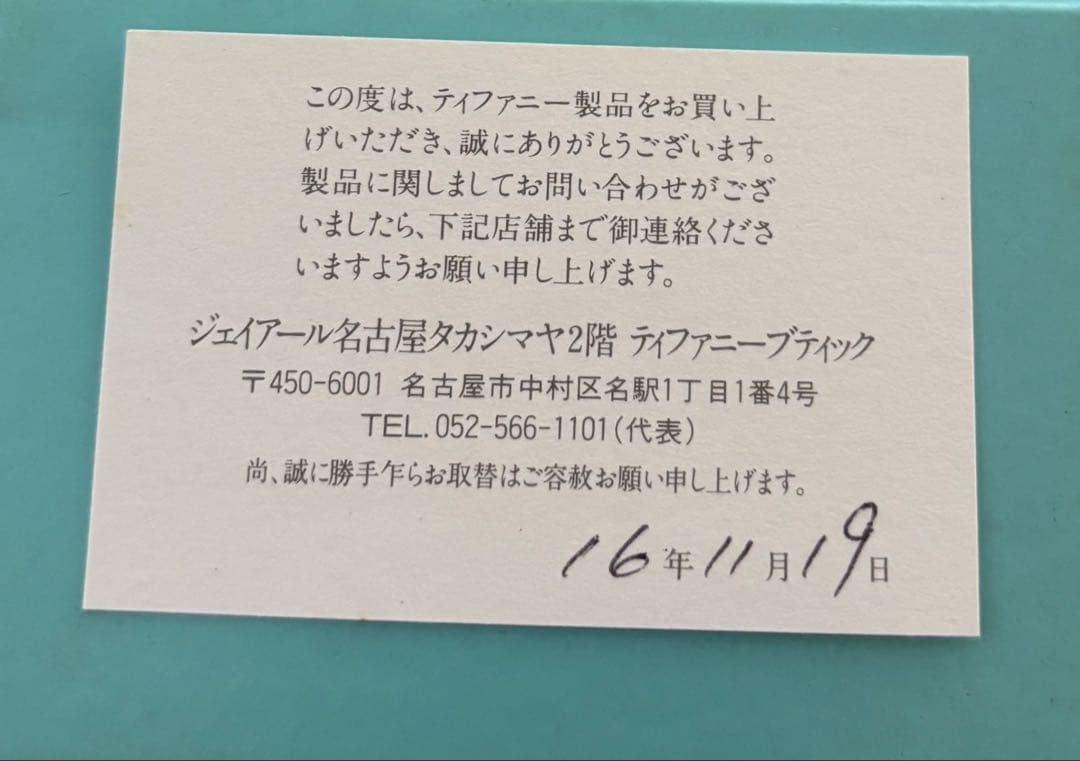 この度は、ティファニー製品をお買い上
げいただき、誠にありがとうございます。
製品に関しましてお問い合わせがござ
いましたら、下記店舗まで御連絡くださ
いますようお願い申し上げます。
ジェイアール名古屋タカシマヤ2階 ティファニーブティック
〒450-6001 名古屋市中村区名駅1丁目1番4号
TEL.052-566-1101(代表)
尚、誠に勝手乍らお取替はご容赦お願い申し上げます。
16年11月19日